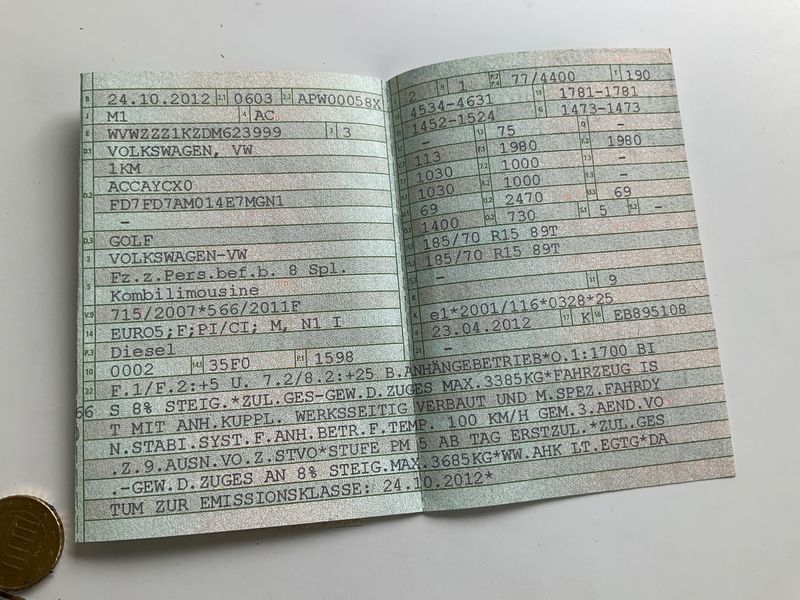 B 24.10.2012 2.1 0603 2.2 APW00058X
J M1 4 AC
E WVWZZZ1KZDM623999 3 3
D.1 VOLKSWAGEN, VW
1KM
D.2 ACCAYCX0
FD7FD7AM014E7MGN1
-
D.3 GOLF
2 VOLKSWAGEN-VW
5 Fz.z.Pers.bef.b. 8 Spl.
Kombilimousine
V.9 715/2007*566/2011F
14 EURO5;F;PI/CI; M, N1 I
P.3 Diesel
10 0002 14.1 35F0 P.1 1598
2 9 1 P.2 P.4 77/4400 T 190
4534-4631 19 1781-1781
1452-1524 G 1473-1473
- 13 75 Q -
113 8.1 1980 F.2 1980
1030 7.2 1000 7.3 -
1030 8.2 1000 8.3 -
69 U.2 2470 U.3 69
1400 O.2 730 S.1 5 S.2 -
185/70 R15 89T
185/70 R15 89T
- 11 9
K e1*2001/116*0328*25
6 23.04.2012 17 K 16 EB895108
-
22 F.1/F.2:+5 U. 7.2/8.2:+25 B.ANHÄNGEBETRIEB*O.1:1700 BI
S 8% STEIG.*ZUL.GES-GEW.D.ZUGES MAX.3385KG*FAHRZEUG IS
T MIT ANH.KUPPL. WERKSSEITIG VERBAUT UND M.SPEZ.FAHRDY
N.STABI.SYST.F.ANH.BETR.F.TEMP. 100 KM/H GEM.3.AEND.VO
.Z.9.AUSN.VO.Z.STVO*STUFE PM 5 AB TAG ERSTZUL.*ZUL.GES
.-GEW.D.ZUGES AN 8% STEIG.MAX.3685KG*WW.AHK LT.EGTG*DA
TUM ZUR EMISSIONSKLASSE: 24.10.2012*